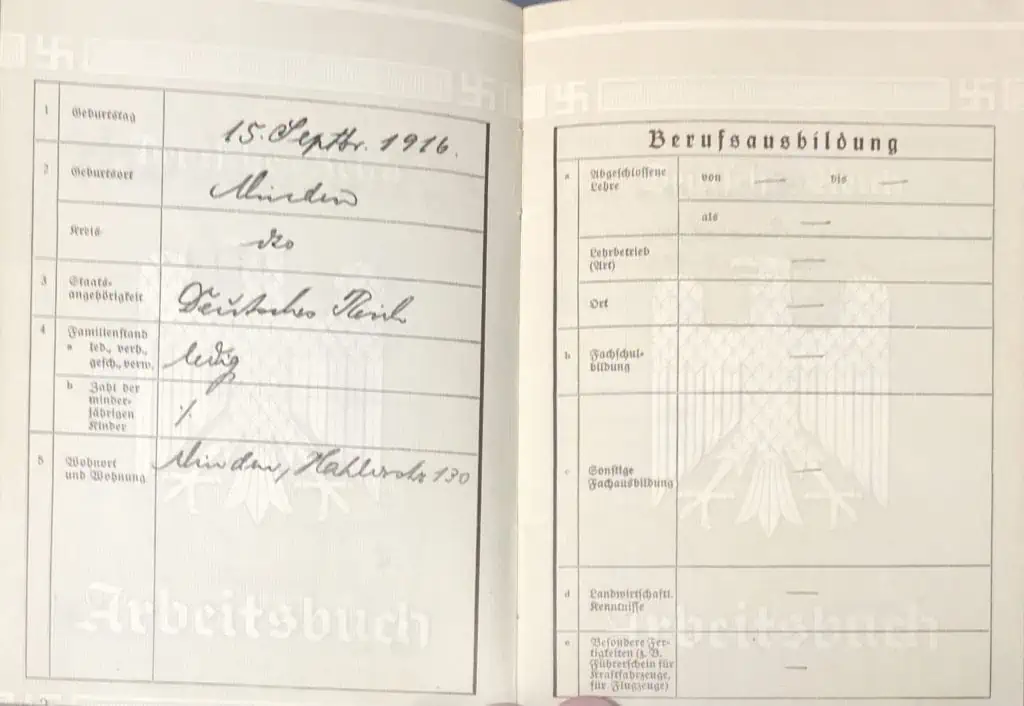 1 Geburtstag 15. Septbr. 1916.
2 Geburtsort Minden
Kreis do
3 Staats-
angehörigkeit Deutsches Reich
4 Familienstand
a led., verh.,
gesch., verw. ledig
b Zahl der
minder-
jährigen
Kinder ⁒
5 Wohnort
und Wohnung Minden, 130
Arbeitsbuch
2
Berufsausbildung
a Abgeschlossene
Lehre von — bis —
als —
Lehrbetrieb
(Art) —
Ort —
b Fachschul-
bildung —
c Sonstige
Fachausbildung —
d Landwirtschaftl.
Kenntnisse —
e Besondere Fer-
tigkeiten (z. B.
Führerschein für
Kraftfahrzeuge,
für Flugzeuge) —
Arbeitsbuch